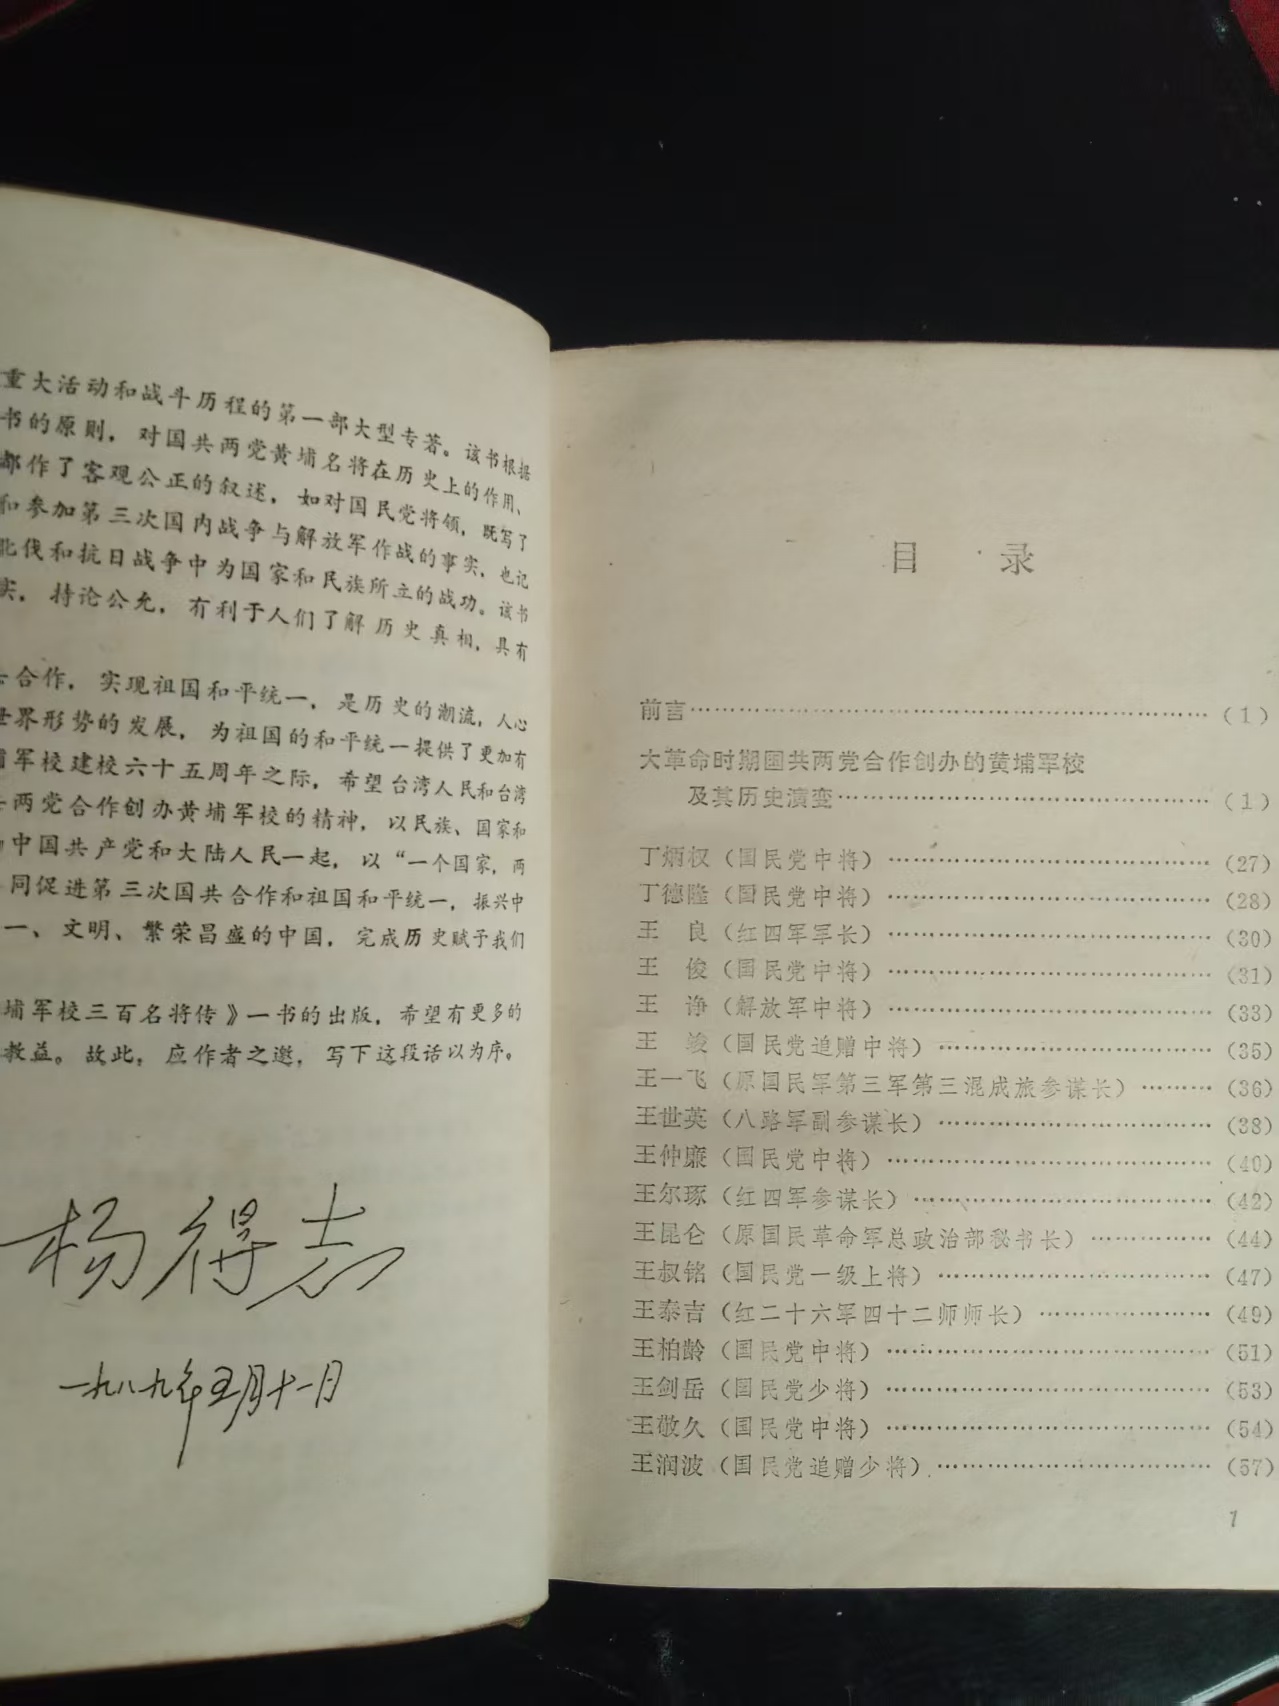 重大活动和战斗历程的第一部大型专著。该书根据
书的原则，对国共两党黄埔名将在历史上的作用、
都作了客观公正的叙述，如对国民党将领，既写了
和参加第三次国内战争与解放军作战的事实，也记
北伐和抗日战争中为国家和民族所立的战功。该书
实，持论公允，有利于人们了解历史真相，具有
合作，实现祖国和平统一，是历史的潮流，人心
世界形势的发展，为祖国的和平统一提供了更加有
军校建校六十五周年之际，希望台湾人民和台湾
两党合作创办黄埔军校的精神，以民族、国家和
中国共产党和大陆人民一起，以“一个国家，两
同促进第三次国共合作和祖国和平统一，振兴中
一、文明、繁荣昌盛的中国，完成历史赋予我们
埔军校三百名将传》一书的出版，希望有更多的
教益。故此，应作者之邀，写下这段话以为序。
杨得志
一九八九年五月十一日
目 录
前言……………………………………………………（1）
大革命时期国共两党合作创办的黄埔军校
及其历史演变……………………………………（1）
丁炳权（国民党中将）………………………………（27）
丁德隆（国民党中将）………………………………（28）
王 良（红四军军长）………………………………（30）
王 俊（国民党中将）………………………………（31）
王 诤（解放军中将）………………………………（33）
王 竣（国民党追赠中将）…………………………（35）
王一飞（原国民军第三军第三混成旅参谋长）………（36）
王世英（八路军副参谋长）…………………………（38）
王仲廉（国民党中将）………………………………（40）
王尔琢（红四军参谋长）……………………………（42）
王昆仑（原国民革命军总政治部秘书长）……………（44）
王叔铭（国民党一级上将）…………………………（47）
王泰吉（红二十六军四十二师师长）…………………（49）
王柏龄（国民党中将）………………………………（51）
王剑岳（国民党少将）………………………………（53）
王敬久（国民党中将）………………………………（54）
王润波（国民党追赠少将）…………………………（57）
1